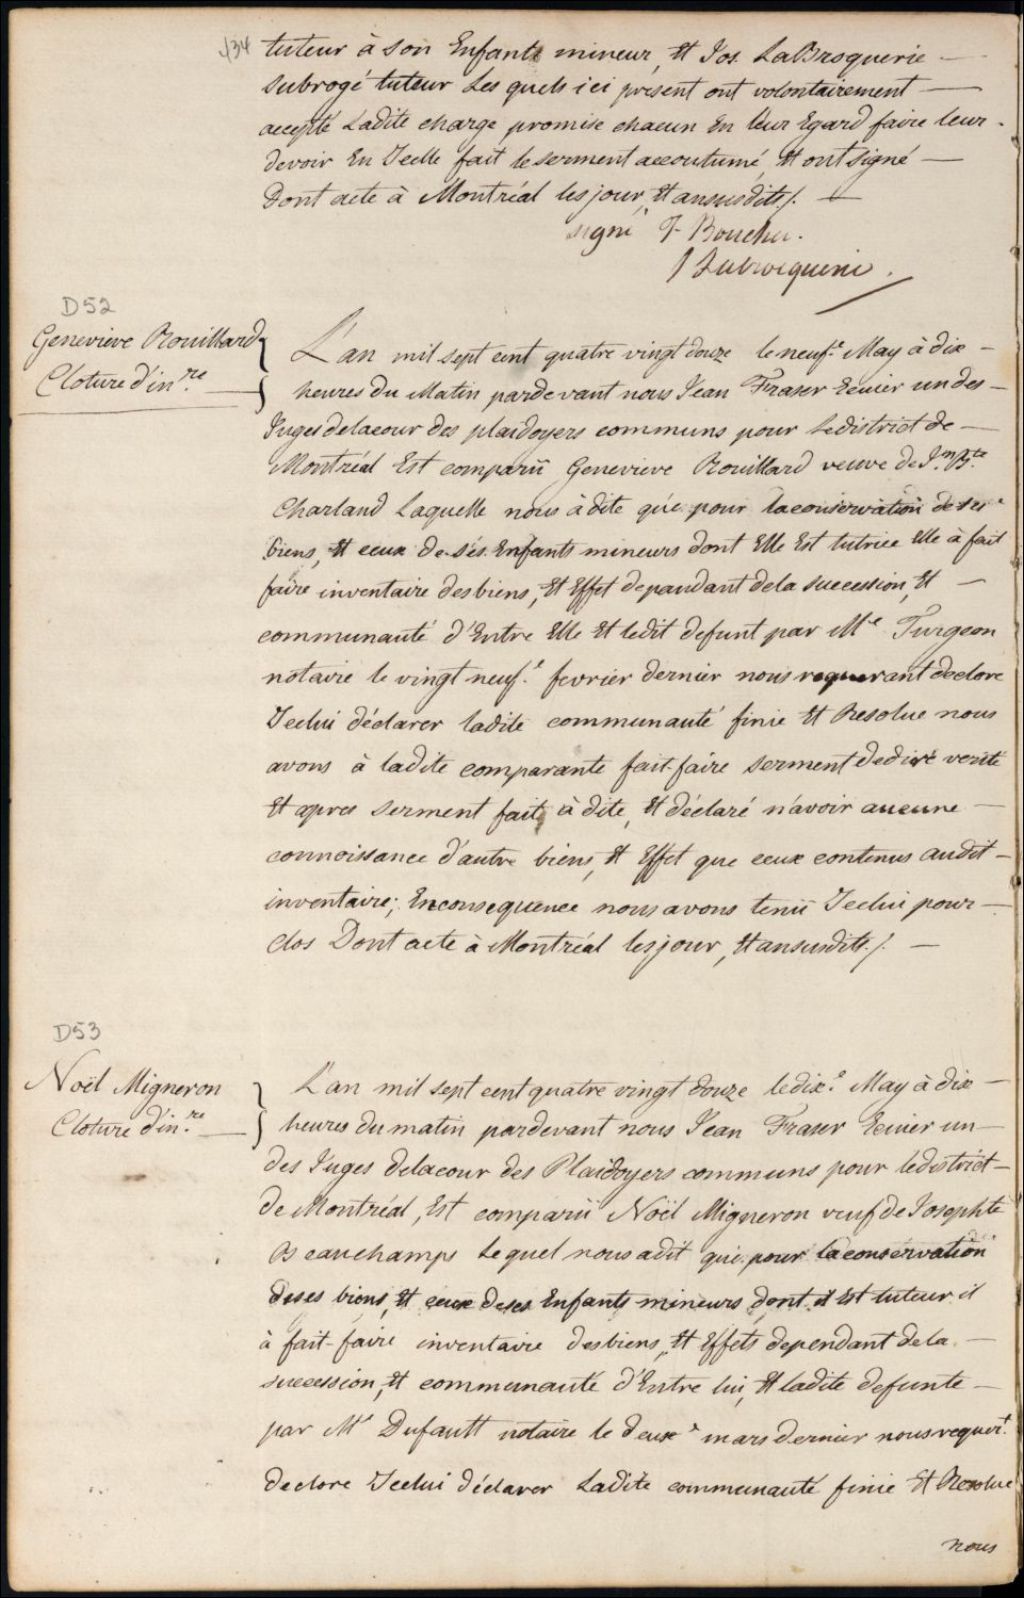 134
tuteur à son Enfants mineur, Et Jos. LaBroquerie —
subrogé tuteur Les quels ici present ont volontairement —
accepté Ladite charge promise chacun En leur Egard faire leur -
devoir En Icelle fait le serment accoutumé, Et ont signé —
Dont acte à Montréal les jour, Et an susdits /. —
signé F Boucher.
J Labroquerie.
D52
Genevieve Rouillard
Cloture d'in.re —
L'an mil sept cent quatre vingt douze le neuf.e May à dix —
heures du Matin pardevant nous Jean Fraser Ecuier un des —
Juges de la cour des plaidoyers communs pour Le district de —
Montréal Est comparü Genevieve Rouillard veuve de J.n B.te
Charland Laquelle nous à dite que pour la conservation de ses
biens, Et ceux de ses Enfants mineurs dont Elle Est tutrice Elle à fait
faire inventaire des biens, Et Effet dependant de la succession, Et —
communauté d'Entre Elle Et ledit defunt par M.e Turgeon
notaire le vingt neuf.e fevrier dernier nous requerant declore
Icelui déclarer ladite communauté finie Et Resolue nous
avons à ladite comparante fait faire serment de dire verité
Et apres serment fait, à dite, Et déclaré n'avoir aucune —
connoissance d'autre biens, Et Effet que ceux contenus audit —
inventaire; En consequence nous avons tenü Icelui pour —
clos Dont acte à Montréal les jour, Et an susdits /. —
D53
Noël Migneron
Cloture d'in.re —
L'an mil sept cent quatre vingt douze le dix.e May à dix —
heures du matin pardevant nous Jean Fraser Ecuier un —
des Juges de la cour des Plaidoyers communs pour le district —
de Montréal, Est comparü Noël Migneron veuf de Josephte
Beauchamps Le quel nous a dit que pour la conservation
de ses biens, Et ceux de ses Enfants mineurs dont il Est tuteur il
à fait faire inventaire des biens, Et Effets dependant de la —
succession, Et communauté d'Entre lui, Et ladite defunte —
par M.e Dufault notaire le deux.e mars dernier nous requer.t
declore Icelui déclarer Ladite communauté finie Et Resolue
nous